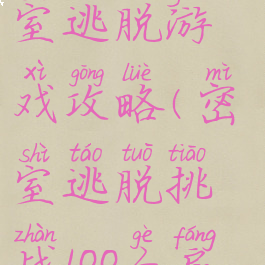 室逃脱游
xì gōng lüè mì
戏攻略(密
shì táo tuō tiāo
室逃脱挑
zhàn gè fáng
战100个房